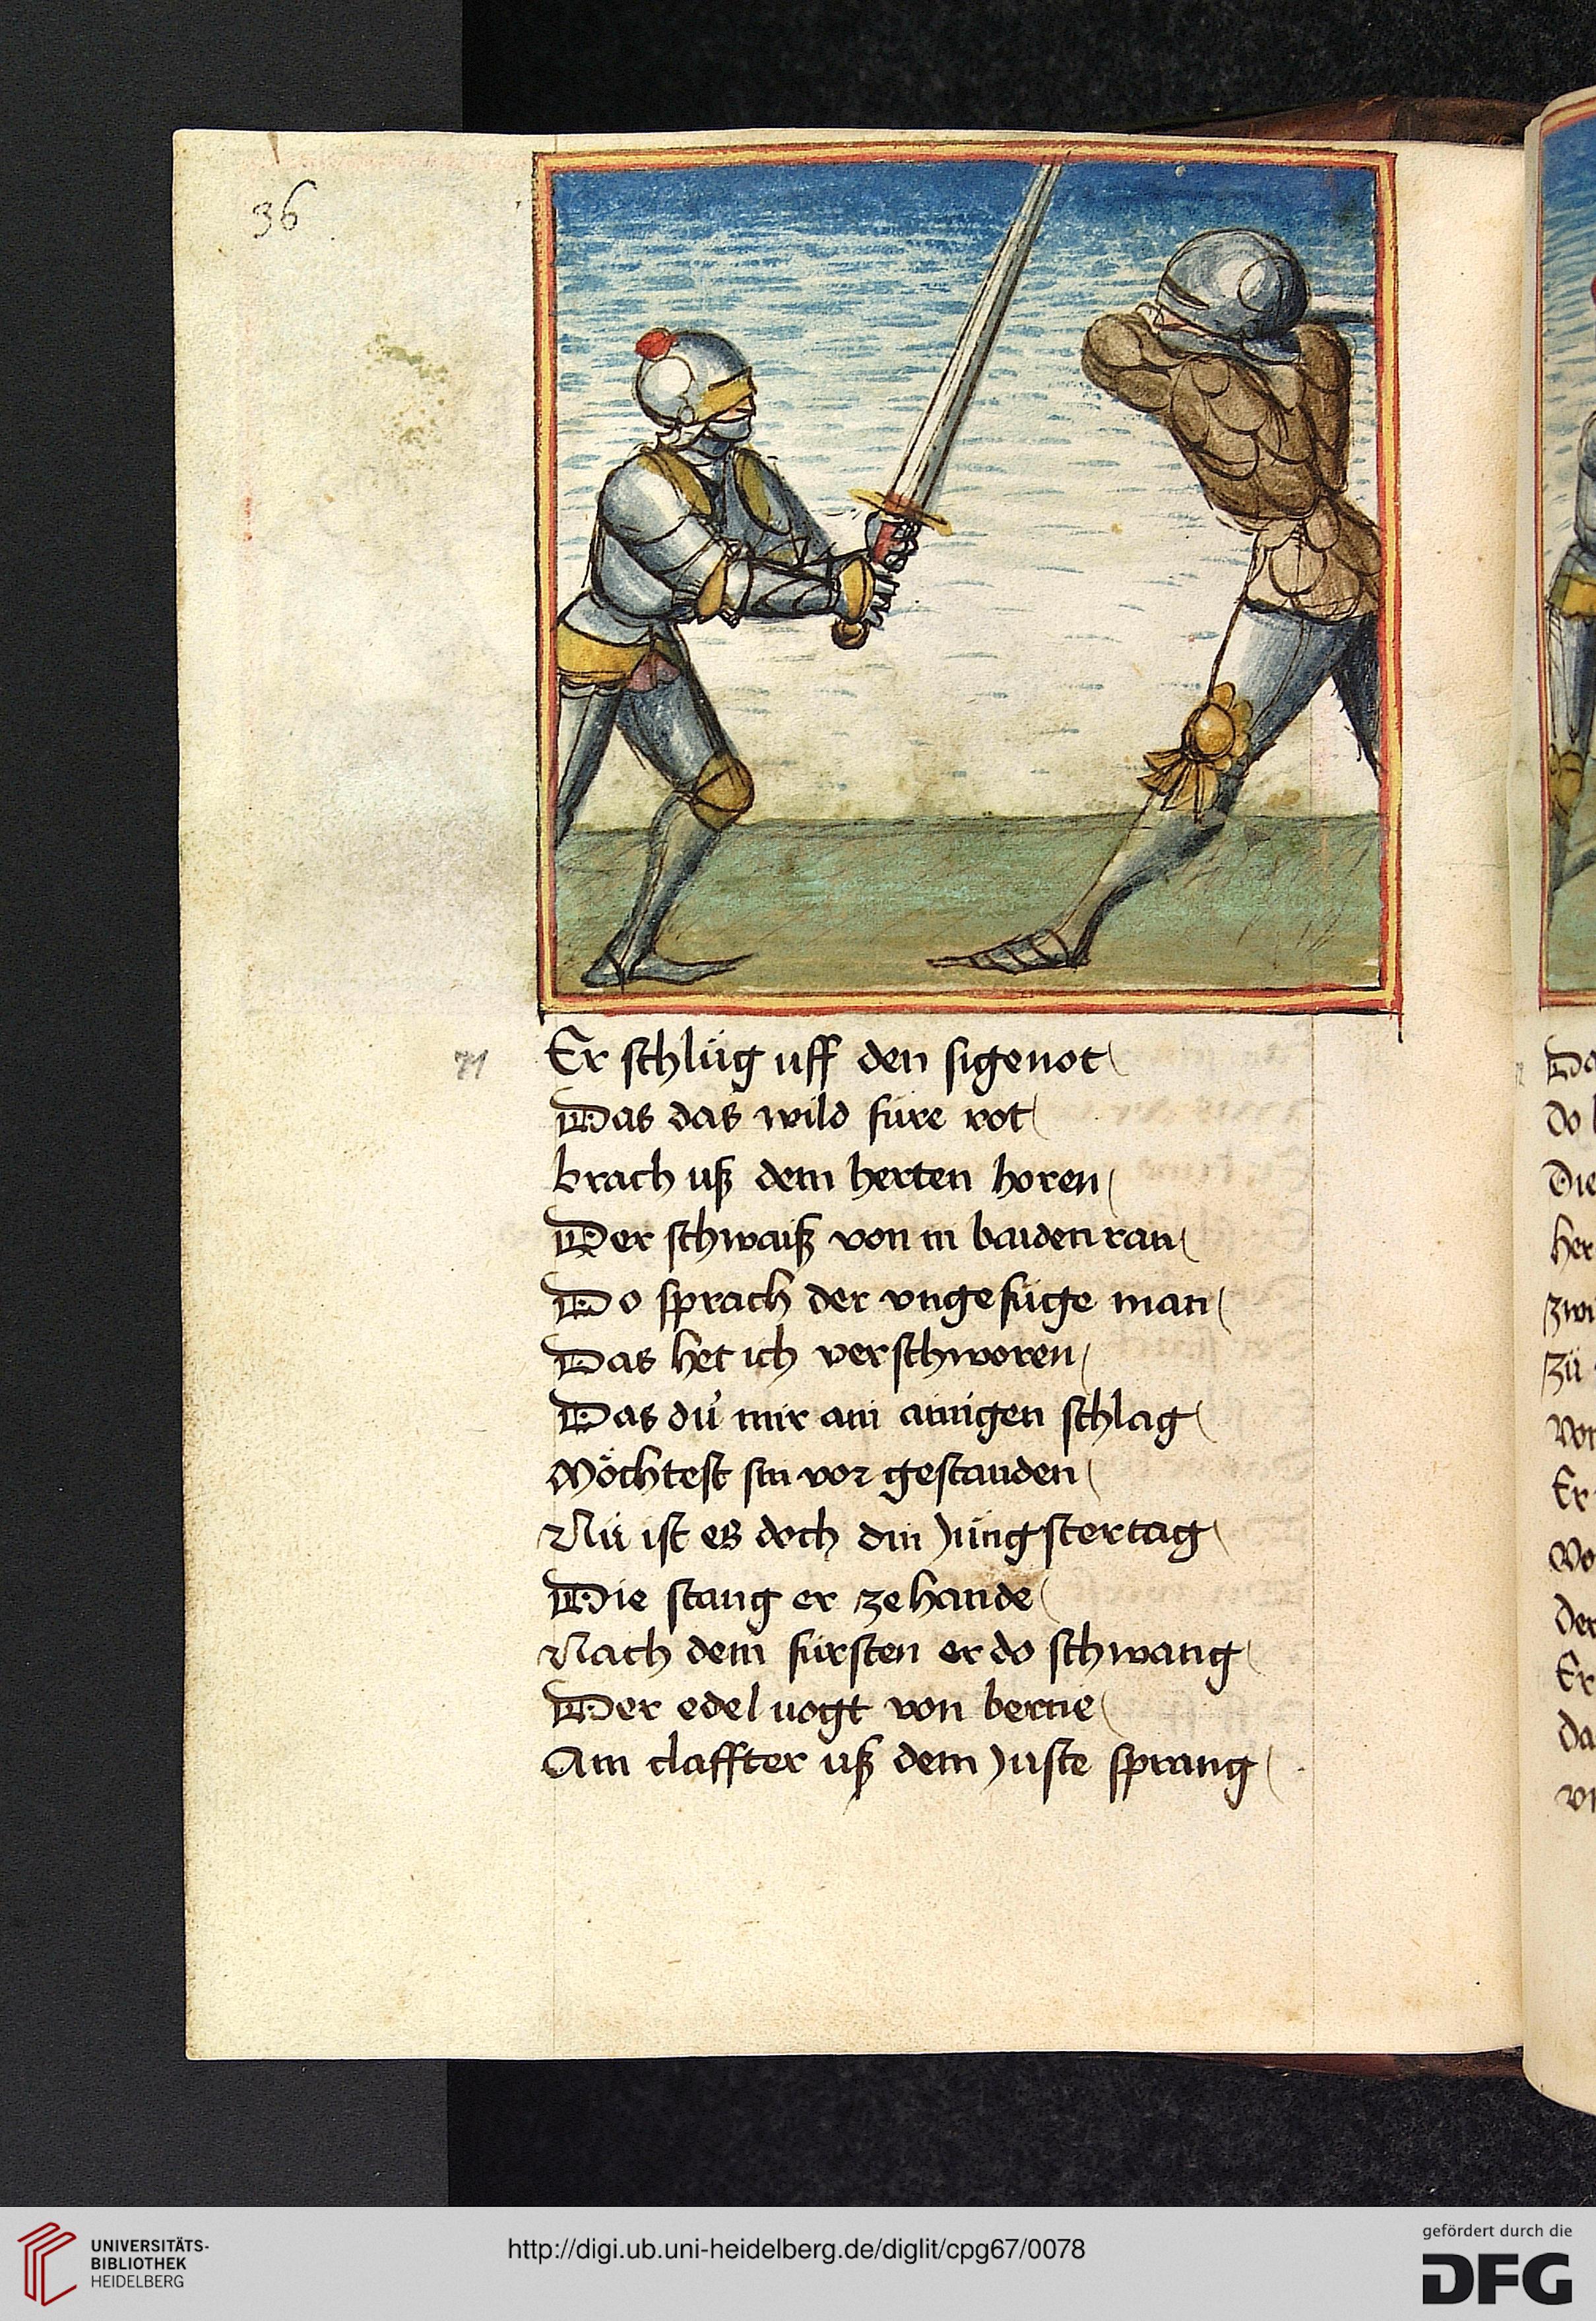 36
71
Er schlůg uff den sigenot
Das das wild füre rot
brach uß dem herten horen
Der schwaiß von in baiden ran
Do sprach der vngefüge man
Das het ich verschworen
Das du mir ain ainigen schlag
Möchtest sin vor gestanden
Nů ist es doch din Jüngster tag
Die stang er ze hande
Nach dem fürsten er do schwang
Der edel uogt von berne
Ain claffter uß dem Juste sprang
UNIVERSITÄTS-
BIBLIOTHEK
HEIDELBERG
http://digi.ub.uni-heidelberg.de/diglit/cpg67/0078
gefördert durch die
DFG